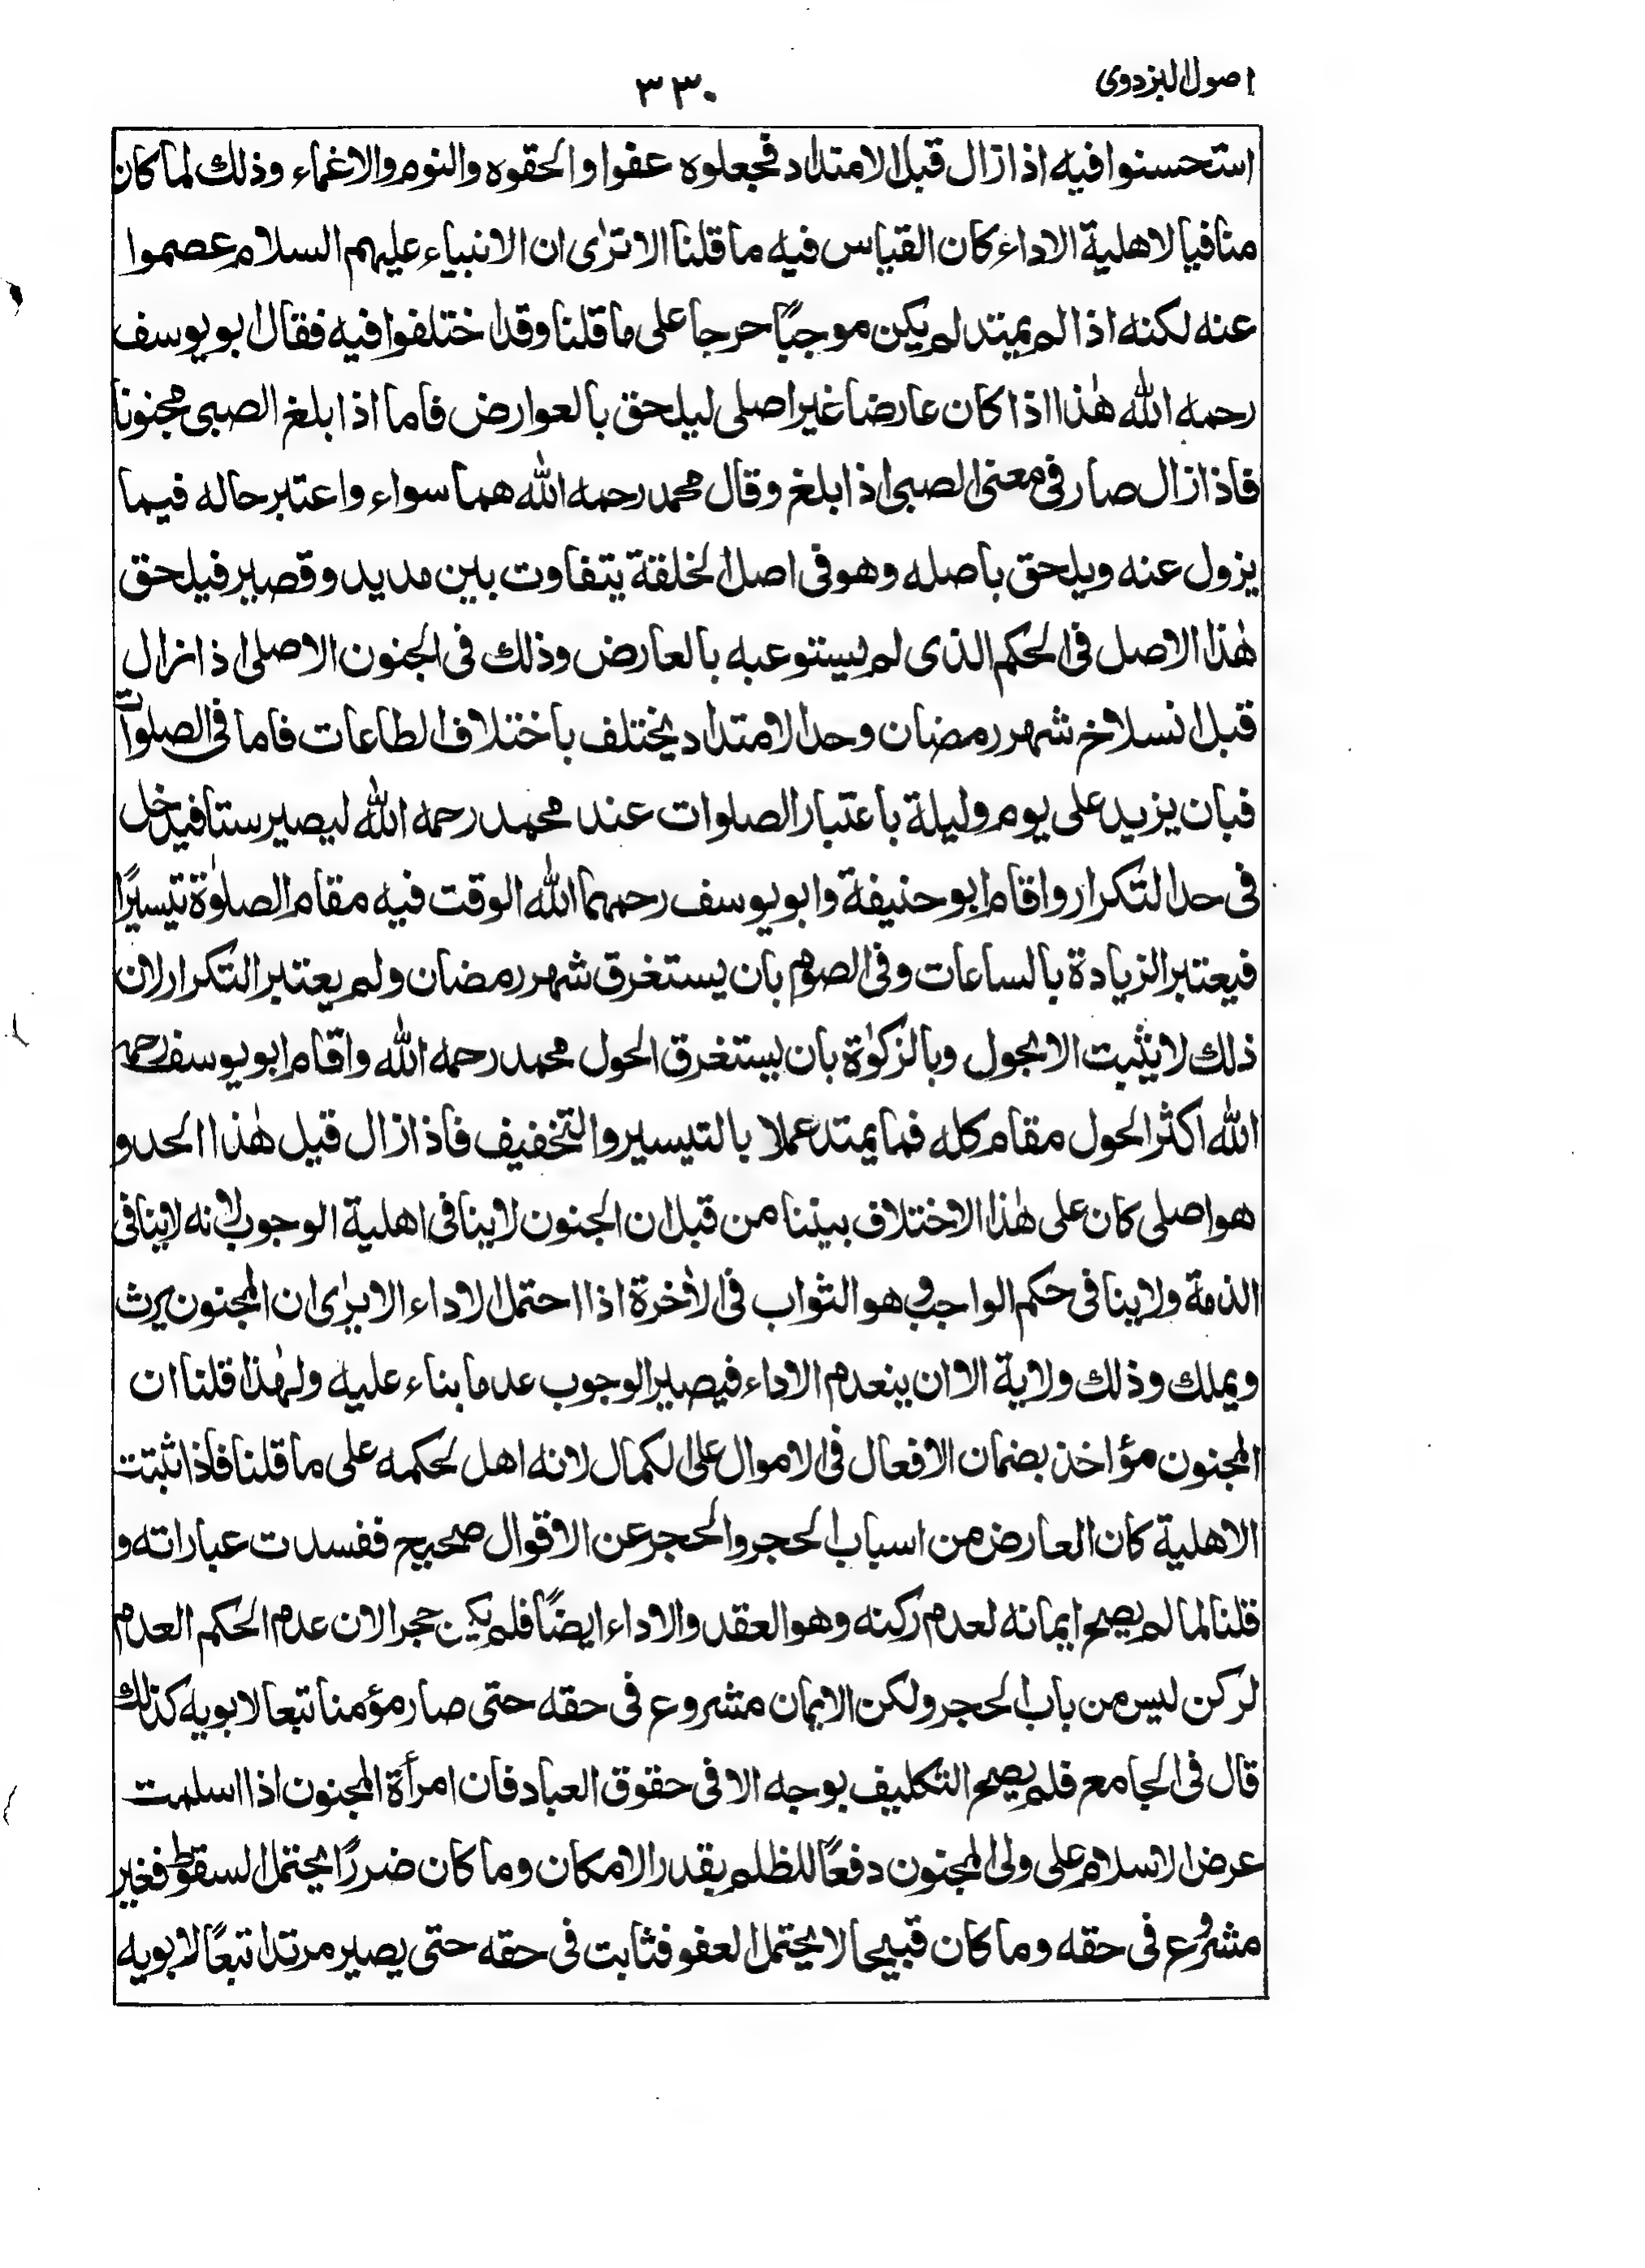 اصول البزدوى
٣٣٠
استحسنوا فيه اذا زال قبل الامتداد فجعلوه عفوا والحقوه والنوم والاغماء وذلك لما كان
منافيا لاهلية الاداء كان القياس فيه ما قلنا الا ترٰى ان الانبياء عليهم السلام عصموا
عنه لكنه اذا لم يمتد لم يكن موجبًا حرجا على ما قلنا وقد اختلفوا فيه فقال ابو يوسف
رحمه اللّٰه هٰذا اذا كان عارضا غير اصلى ليلحق بالعوارض فاما اذا بلغ الصبى مجنونا
فاذا زال صار فى معنى الصبى اذا بلغ وقال محمد رحمه اللّٰه هما سواء واعتبر حاله فيما
يزول عنه ويلحق باصله وهو فى اصل الخلقة يتفاوت بين مديد وقصير فيلحق
هٰذا الاصل فى الحكم الذى لم يستوعبه بالعارض وذلك فى الجنون الاصلى اذا زال
قبل انسلاخ شهر رمضان وحد الامتداد يختلف باختلاف الطاعات فاما فى الصلوات
فبان يزيد على يوم وليلة باعتبار الصلوات عند محمد رحمه اللّٰه ليصير ستا فيدخل
فى حد التكرار واقام ابو حنيفة وابو يوسف رحمهما اللّٰه الوقت فيه مقام الصلوٰة تيسيرًا
فيعتبر الزيادة بالساعات وفى الصوم بان يستغرق شهر رمضان ولم يعتبر التكرار لان
ذلك لا يثبت الا بحول وبالزكوٰة بان يستغرق الحول محمد رحمه اللّٰه واقام ابو يوسف رحمه
اللّٰه اكثر الحول مقام كله فما يمتد عملا بالتيسير والتخفيف فاذا زال قبل هٰذا الحد و
هو اصلى كان على هٰذا الاختلاف بيننا من قبل ان الجنون لا ينافى اهلية الوجوب لانه لا ينافى
الذمة ولا ينافى حكم الواجب وهو الثواب فى الاٰخرة اذا احتمل الاداء الا يرٰى ان المجنون يرث
ويملك وذلك ولاية الا ان ينعدم الاداء فيصير الوجوب عدما بناء عليه ولهٰذا قلنا ان
المجنون مؤاخذ بضمان الافعال فى الاموال على الكمال لانه اهل لحكمه على ما قلنا فاذا ثبتت
الاهلية كان العارض من اسباب الحجر والحجر عن الاقوال صحيح ففسدت عباراته و
قلنا لما لم يصح ايمانه لعدم ركنه وهو العقد والاداء ايضًا فلم يكن حجرا لان عدم الحكم العدم
لركن ليس من باب الحجر ولكن الايمان مشروع فى حقه حتى صار مؤمنا تبعا لابويه كذلك
قال فى الجامع فلم يصح التكليف بوجه الا فى حقوق العباد فان امرأة المجنون اذا اسلمت
عرض الاسلام على ولى المجنون دفعًا للظلم بقدر الامكان وما كان ضررًا يحتمل السقوط فغير
مشروع فى حقه وما كان قبيحا لا يحتمل العفو فثابت فى حقه حتى يصير مرتدا تبعًا لابويه